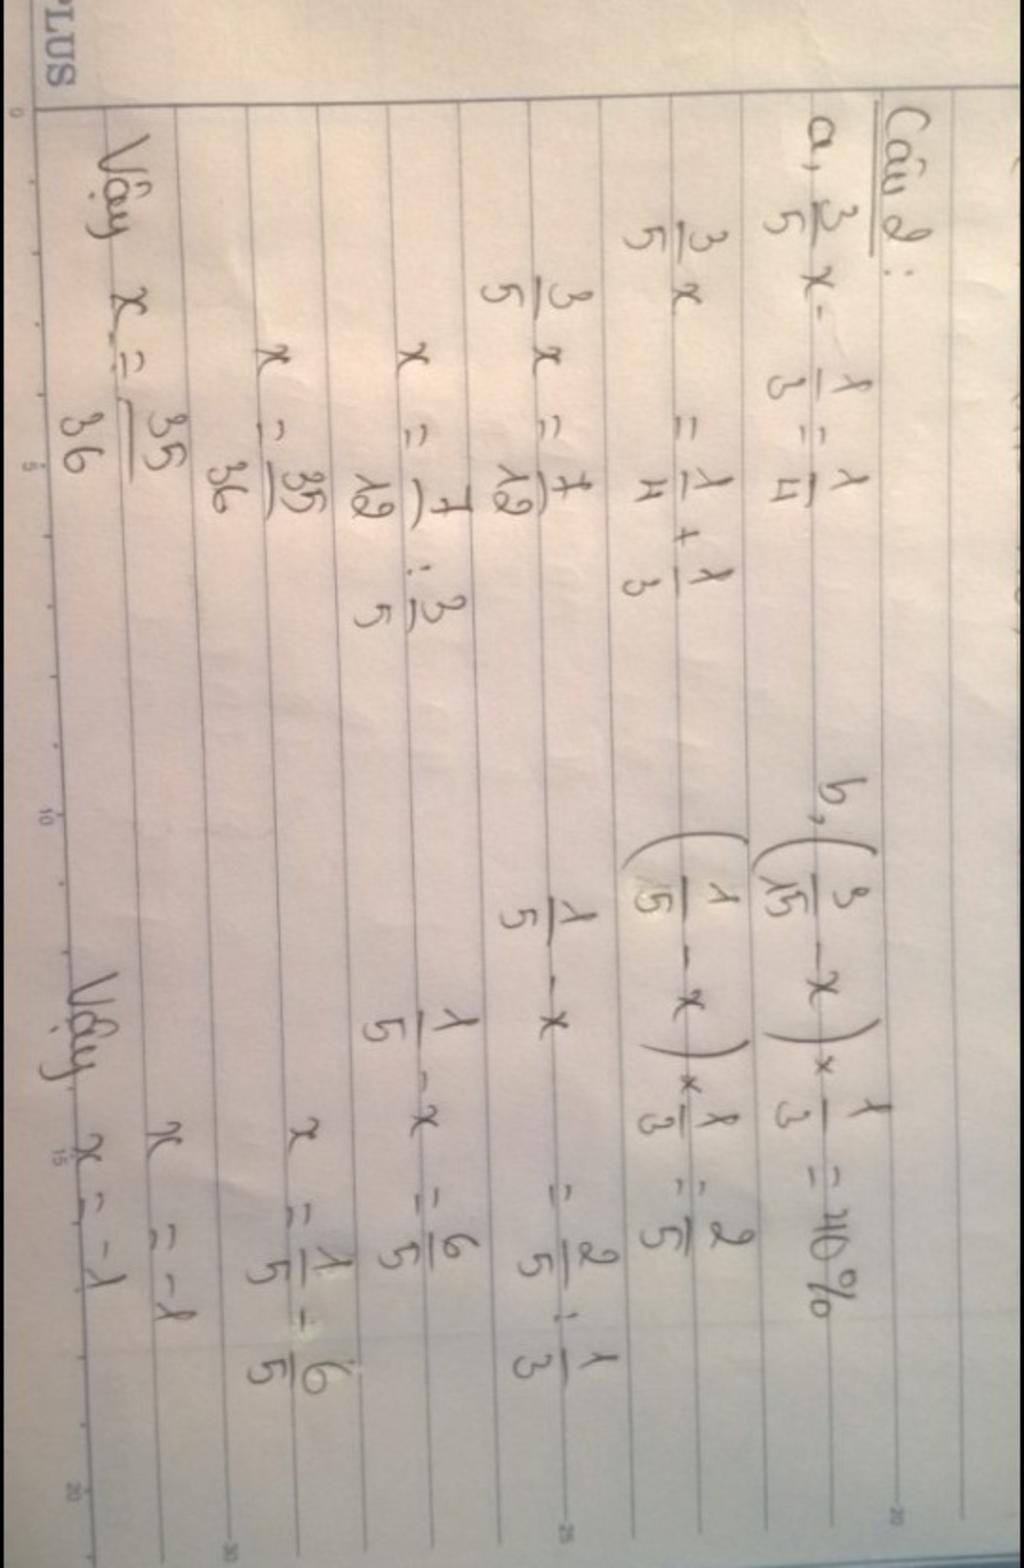 PLUS
Câu 2:
a, 3/5 x - 1/3 = 1/4
3/5 x = 1/4 + 1/3
3/5 x = 7/12
x = 7/12 : 3/5
x = 35/36
Vậy x = 35/36
b, (3/15 - x) × 1/3 = 40%
(1/5 - x) × 1/3 = 2/5
1/5 - x = 2/5 : 1/3
1/5 - x = 6/5
x = 1/5 - 6/5
x = -1
Vậy x = -1
0
5
10
15
20
20
25
30